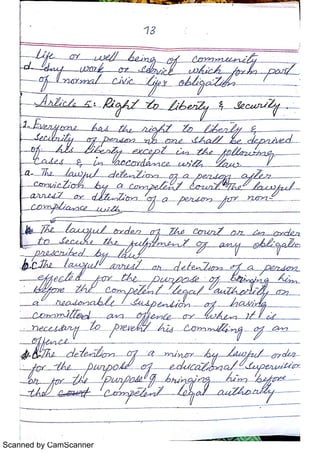 13
life or well being of community
d. Any work or service which form part
of normal civic life obligation.
Article 5: Right to liberty & security.
1. Everyone has the right to liberty &
security of person no one shall be deprived
of his liberty except in the following
cases & in accordance with law
a. The lawful detention of a person after
conviction by a competent court The lawful
arrest or detention of a person for non-
compliance with
b. The lawful order of the court or in order
to secure the fulfilment of any obligation
prescribed by law
c. The lawful arrest or detention of a person
effected for the purpose of bringing him
before the competent legal authority on
a reasonable suspension of having
committed an offence or when it is
necessary to prevent his committing of an
offence.
d. The detention of a minor by lawful order
for the purpose of educational supervision
or for the purpose of bringing him before
the court competent legal authority
Scanned by CamScanner